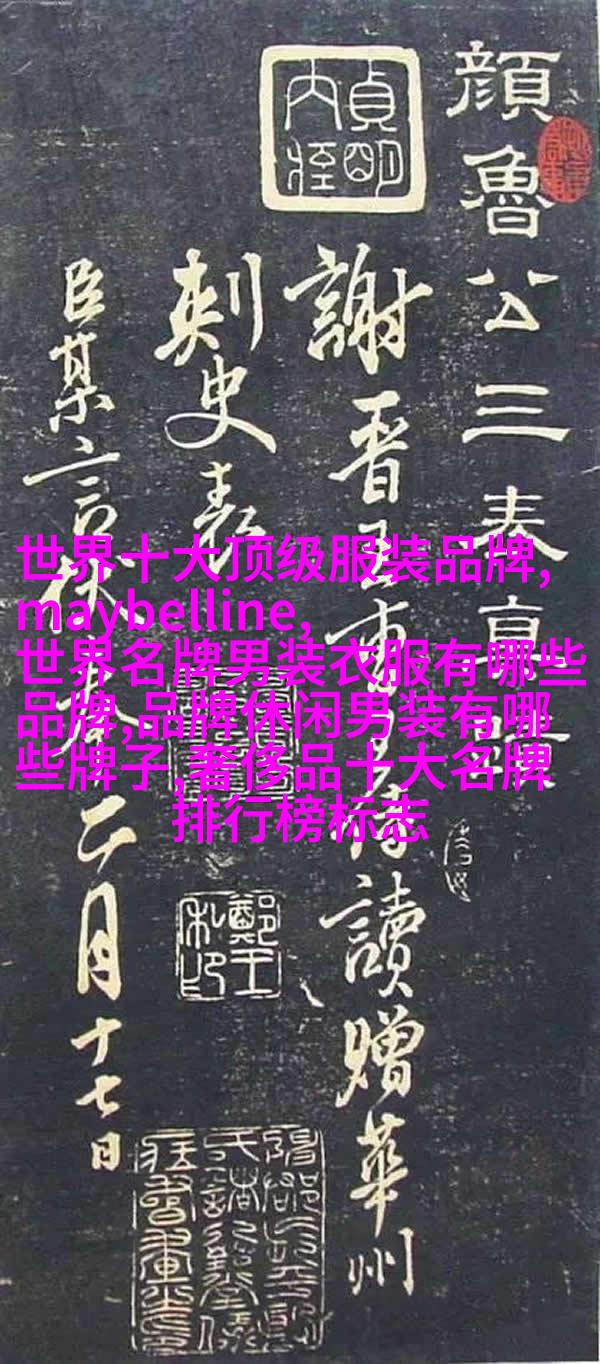 顏魯公三奏真蹟
貞明
謝晉王侍讀贈華州
刺史表
臣某言伏奉二月十七日
世界十大顶级服装品牌,
maybelline,
世界名牌男装衣服有哪些
品牌,品牌休闲男装有哪
些牌子,奢侈品十大名牌
排行榜标志